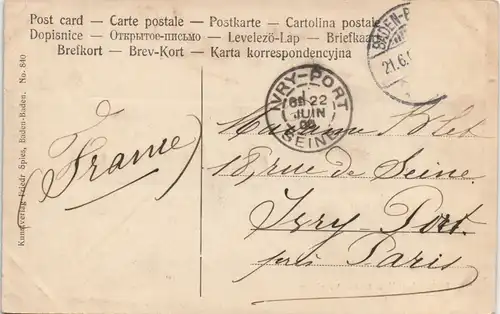 Post card – Carte postale – Postkarte – Cartolina postale
Dopisnice – Открытое-письмо – Levelező-Lap – Briefkaa
Brefkort – Brev-Kort – Karta korrespondencyjna
BADEN-B
21.6.
IVRY-PORT
22
JUIN
SEINE
Kunstverlag Friedr Spies, Baden-Baden. No. 840
(France)
Madame
18, rue de Seine.
Ivry-Port
près Paris